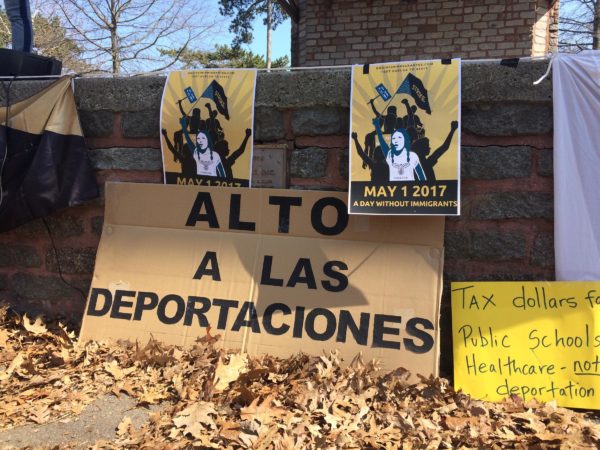 STRIKE
MAY 1 2017
MAY 1 2017
A DAY WITHOUT IMMIGRANTS
ALTO
A LAS
DEPORTACIONES
TAX dollars fo
Public Schools
Healthcare - not
deportation